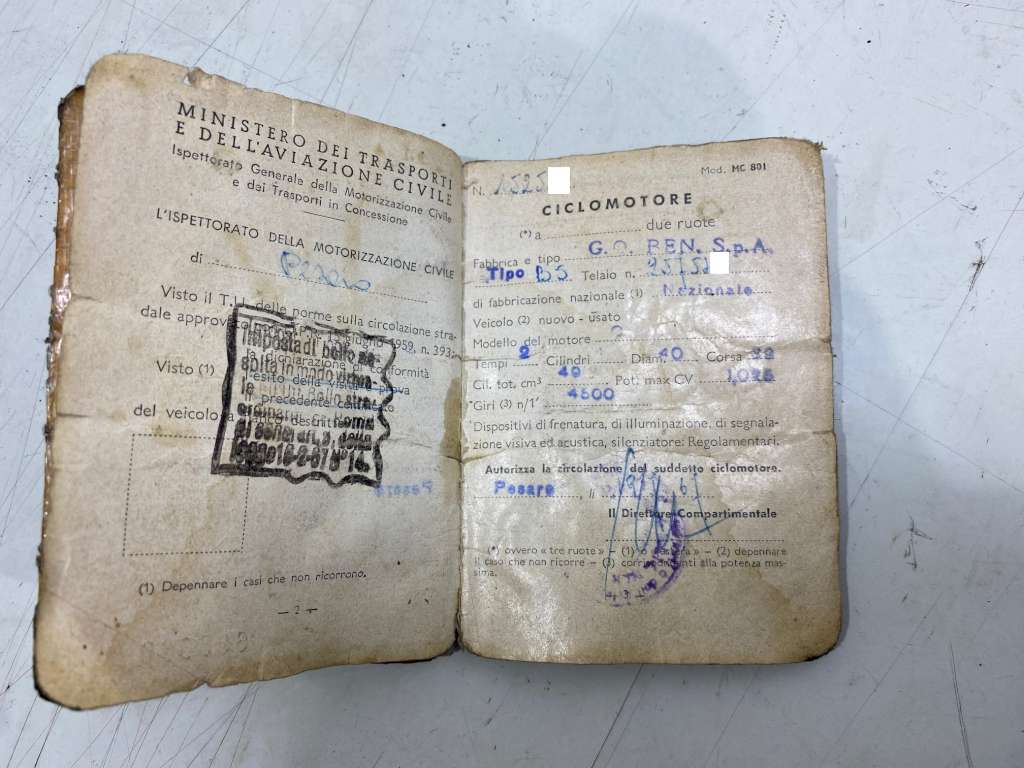 MINISTERO DEI TRASPORTI
E DELL'AVIAZIONE CIVILE
Ispettorato Generale della Motorizzazione Civile
e dei Trasporti in Concessione
L'ISPETTORATO DELLA MOTORIZZAZIONE CIVILE
di
Visto il T.U. delle norme sulla circolazione stra-
dale approvato giugno 1959, n. 393;
la dichiarazione di conformità
Visto (1) l'esito della visita e prova
il precedente certificato
del veicolo a fianco descritto
Imposta di bollo as-
solta in modo virtua-
le
Pesaro
(1) Depennare i casi che non ricorrono.
— 2 —
Mod. MC 801
N. 1525
CICLOMOTORE
(*) a due ruote
Fabbrica e tipo G.O. BEN. S.p.A.
Tipo B5 Telaio n.
di fabbricazione nazionale (1) Nazionale
Veicolo (2) nuovo - usato
Modello del motore
Tempi 2 Cilindri Diam. 40 Corsa
Cil. tot. cm³ 49 Pot. max CV
Giri (3) n/1' 4500
Dispositivi di frenatura, di illuminazione, di segnala-
zione visiva ed acustica, silenziatore: Regolamentari.
Autorizza la circolazione del suddetto ciclomotore.
Pesaro, li
Il Direttore Compartimentale
(*) ovvero « tre ruote » — (1) o « estera » — (2) depennare
il caso che non ricorre — (3) corrispondenti alla potenza mas-
sima.